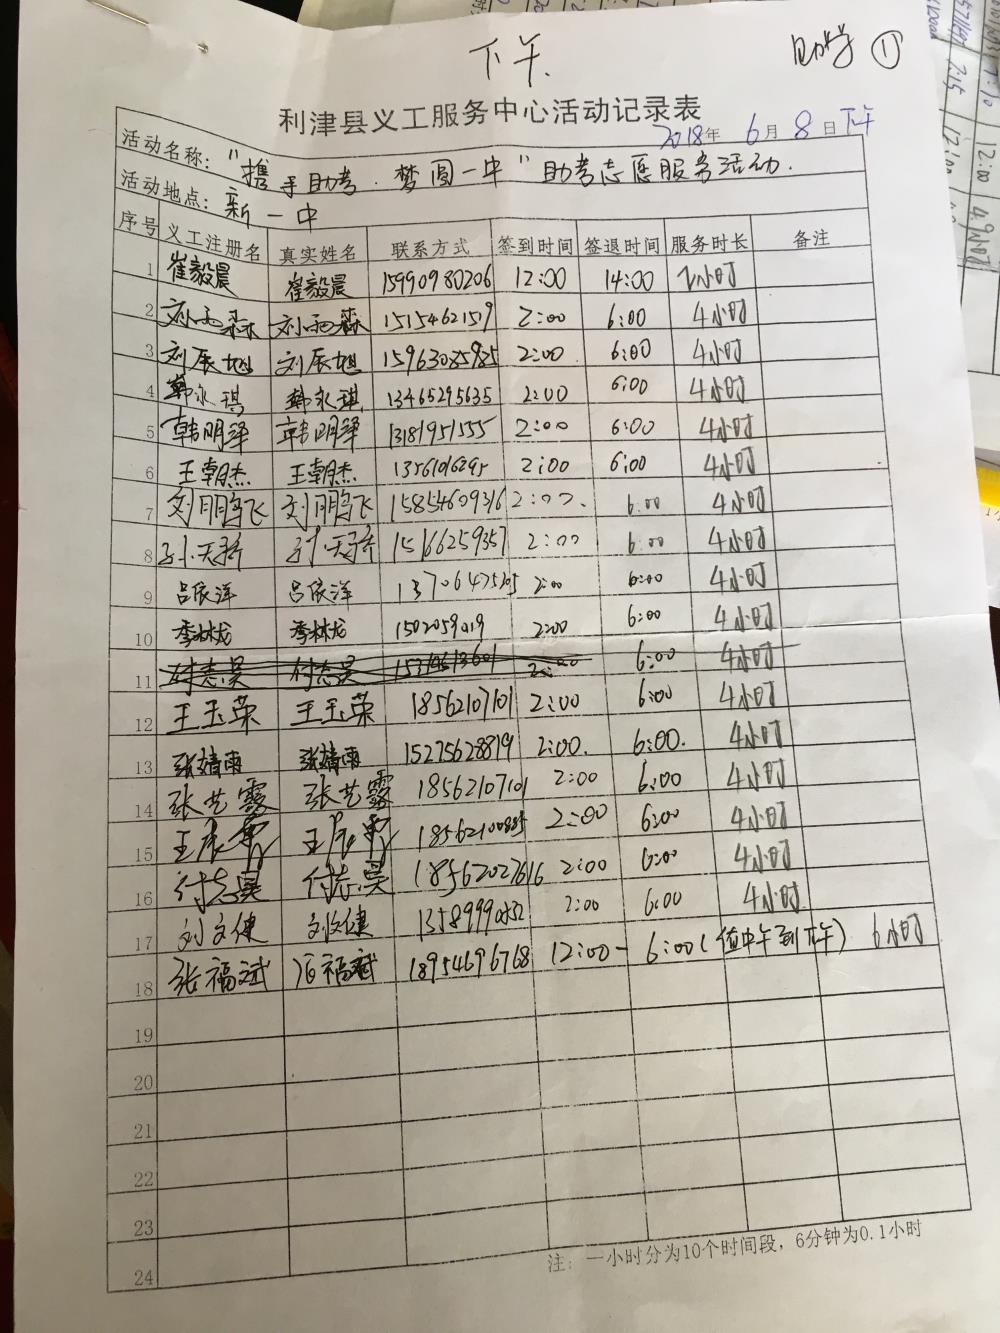 下午.
助学 ①
利津县义工服务中心活动记录表
2018年 6月 8日 下午
活动名称："携手助考.梦圆一中"助考志愿服务活动.
活动地点：新一中
序号 义工注册名 真实姓名 联系方式 签到时间 签退时间 服务时长 备注
1 崔毅晨 崔毅晨 15990980206 12:00 14:00 2小时
2 刘雨森 刘雨森 15154621509 2:00 6:00 4小时
3 刘辰旭 刘辰旭 15963085985 2:00 6:00 4小时
4 韩永琪 韩永琪 13465295635 2:00 6:00 4小时
5 韩明泽 韩明泽 13181951555 2:00 6:00 4小时
6 王朝杰 王朝杰 2:00 6:00 4小时
7 刘鹏飞 刘鹏飞 15854609316 2:00. 6:00 4小时
8 孙天骄 孙天骄 15166259357 2:00 6:00 4小时
9 吕依洋 吕依洋 13706475205 2:00 6:00 4小时
10 季林龙 季林龙 1502059019 2:00 6:00 4小时
11 付志昊 付志昊 2:00 6:00 4小时
12 王玉荣 王玉荣 18562107101 2:00 6:00 4小时
13 张婧雨 张婧雨 15275628819 2:00. 6:00. 4小时
14 张艺露 张艺露 18562107101 2:00 6:00 4小时
15 2:00 6:00 4小时
16 付志昊 付志昊 18562027616 2:00 6:00 4小时
17 刘文健 刘文健 13589990532 2:00 6:00 4小时
18 张福斌 张福斌 18954696768 12:00- 6:00(值中午到下午) 6小时
19
20
21
22
23
24
注：一小时分为10个时间段，6分钟为0.1小时
7:10
7:15
12:00
4.9小时